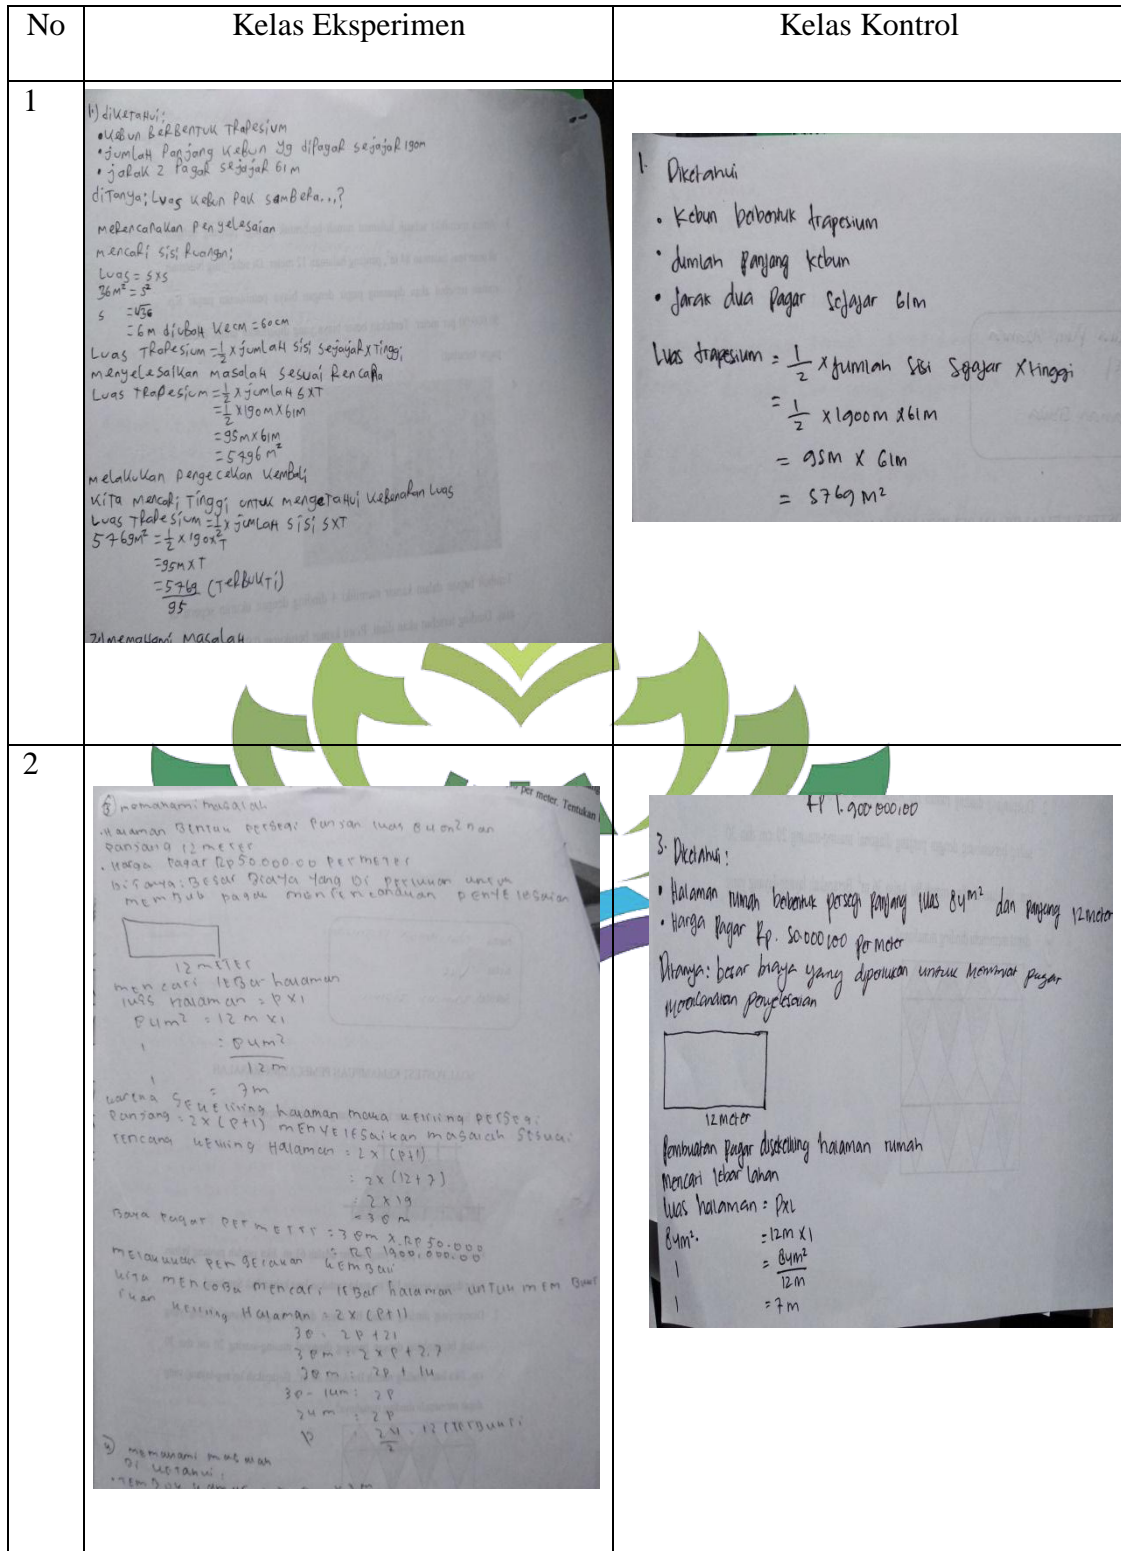 No Kelas Eksperimen Kelas Kontrol
1
1) diketahui:
• Kebun BERBENTUK TRAPESIUM
• jumlah Panjang Kebun yg diPagar sejajar 190m
• jarak 2 Pagar sejajar 61 m
diTanya: Luas Kebun Pak samBera...?
merencanakan Penyelesaian
mencari sisi Ruangan:
Luas = s x s
36 m² = s²
s = √36
= 6 m diubah ke cm = 60 cm
Luas TRaPesium = 1/2 x jumlah sisi sejajar x Tinggi
menyelesaikan masalah sesuai Rencana
Luas TRaPesium = 1/2 x jumlah s x T
= 1/2 x 190 m x 61 m
= 95 m x 61 m
= 5796 m²
melakukan Pengecekan kembali
kita mencari Tinggi untuk mengetahui kebenaran luas
Luas TRaPesium = 1/2 x jumlah sisi s x T
5769 m² = 1/2 x 190 x T
= 95 m x T
= 5769 (TeRBUKTi)
95
2) memahami Masalah
1. Diketahui
• Kebun berbentuk trapesium
• Jumlah panjang kebun
• Jarak dua pagar sejajar 61m
Luas trapesium = 1/2 x jumlah sisi sejajar x tinggi
= 1/2 x 1900m x 61m
= 95m x 61m
= 5769 M²
2
per meter. Tentukan
3) memahami masalah
• Halaman Bentuk persegi Panjan luas 84 m² dan
panjang 12 meter
• Harga Pagar Rp 50.000.00 per meter
Ditanya: Besar Biaya Yang Di perlukan untuk
memBub pagar merencanakan penyelesaian
12 meter
mencari leBar halaman
luas halaman = p x l
84 m² = 12 m x l
l = 84 m²
12 m
l = 7 m
karena sekeliling halaman maka keliling persegi
Panjang = 2 x (p+l) menyelesaikan masalah sesuai
rencana keliling Halaman = 2 x (p+l)
= 2 x (12+7)
= 2 x 19
= 38 m
Baya pagar per meter = 38 m x Rp 50.000
= Rp 1900.000.00
melakukan pemBecakan kemBali
kita mencoBa mencari leBar halaman untuk mem Buk
tikan keliling Halaman = 2 x (p+l)
38 = 2p + 2l
38 m = 2 x p + 2.7
38 m = 2p + 14
38 - 14m = 2p
24 m = 2p
p = 24/2 = 12 (terBukti
4) memahami masalah
Di ketahui:
Rp 1.900.000,00
3. Diketahui:
• Halaman rumah berbentuk persegi panjang luas 84m² dan panjang 12 meter
• Harga pagar Rp. 50.000,00 per meter
Ditanya: besar biaya yang diperlukan untuk membuat pagar
Merencanakan penyelesaian
12 meter
Pembuatan pagar disekeliling halaman rumah
Mencari lebar lahan
luas halaman = PxL
84m² = 12m x l
l = 84m²
12m
l = 7 m